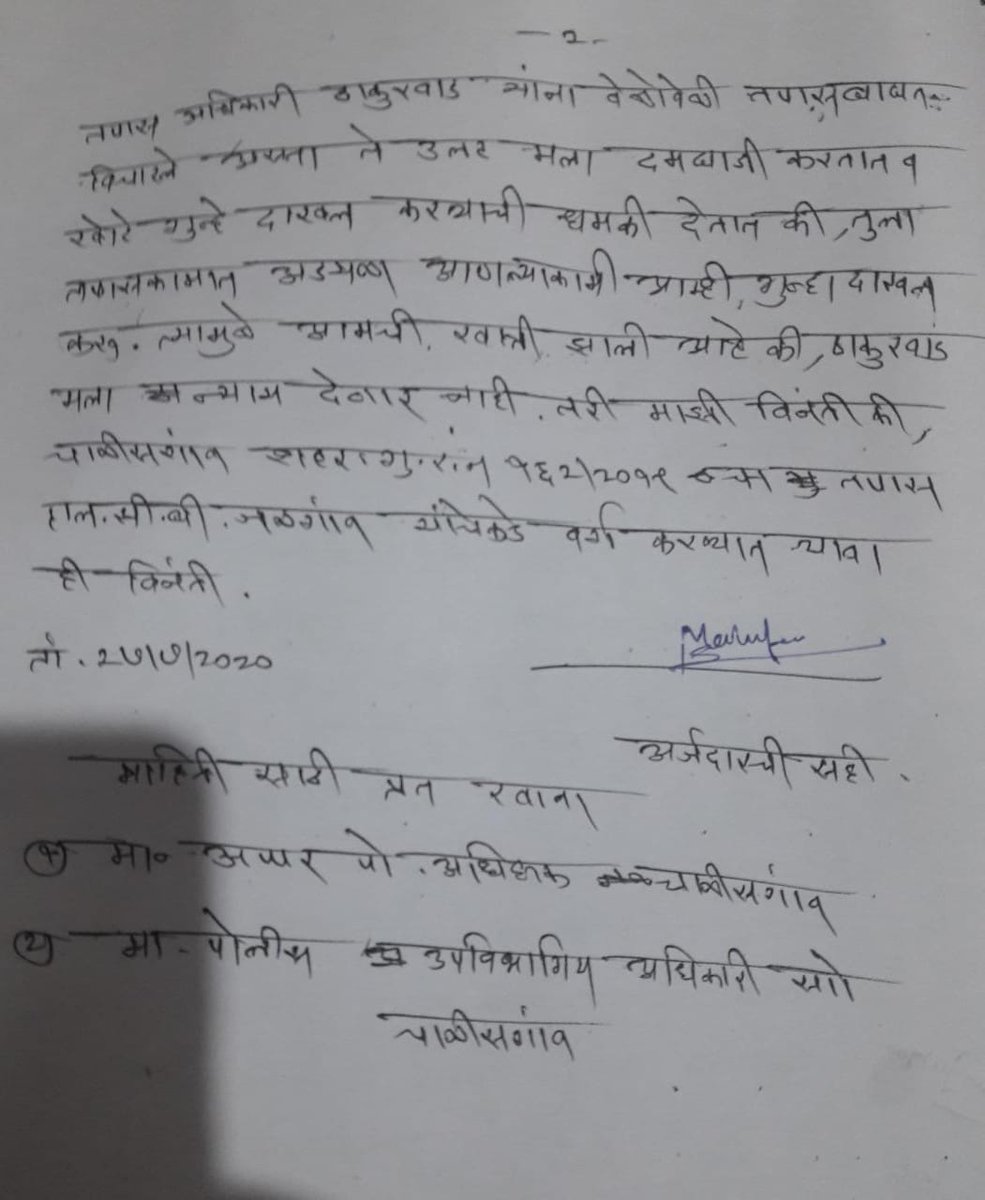 - २ -
तपास अधिकारी ठाकुरवाड यांना वेळोवेळी तपासाबाबत
विचारले असता ते उलट मला दमबाजी करतात व
खोटे गुन्हे दाखल करण्याची धमकी देतात की, तुला
तपासकामात अडथळा आणल्याकामी आम्ही, गुन्हा दाखल
करू. त्यामुळे आमची, खात्री, झाली आहे की, ठाकुरवाड
मला न्याय देणार नाही. तरी माझी विनंती की,
चाळीसगांव शहर गु.र.नं १६२/२०१९ च्या तपास
एल.सी.बी. जळगांव यांचेकडे वर्ग करण्यात यावा
ही विनंती.
ता. २७/७/२०२०
अर्जदारची सही.
माहिती साठी प्रत रवाना
१) मा० अप्पर पो. अधिक्षक चाळीसगांव
२) मा - पोलीस उपविभागिय अधिकारी सो
चाळीसगांव